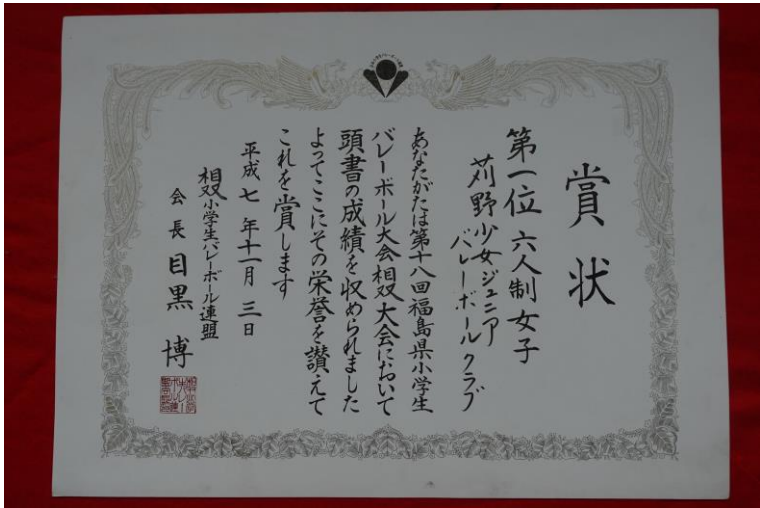 賞状
第一位 六人制女子
苅野少女ジュニア
バレーボールクラブ
あなたがたは第十八回福島県小学生
バレーボール大会相双大会において
頭書の成績を収められました
よってここにその栄誉を讃えて
これを賞します
平成七年十一月三日
相双小学生バレーボール連盟
会長 目黒 博